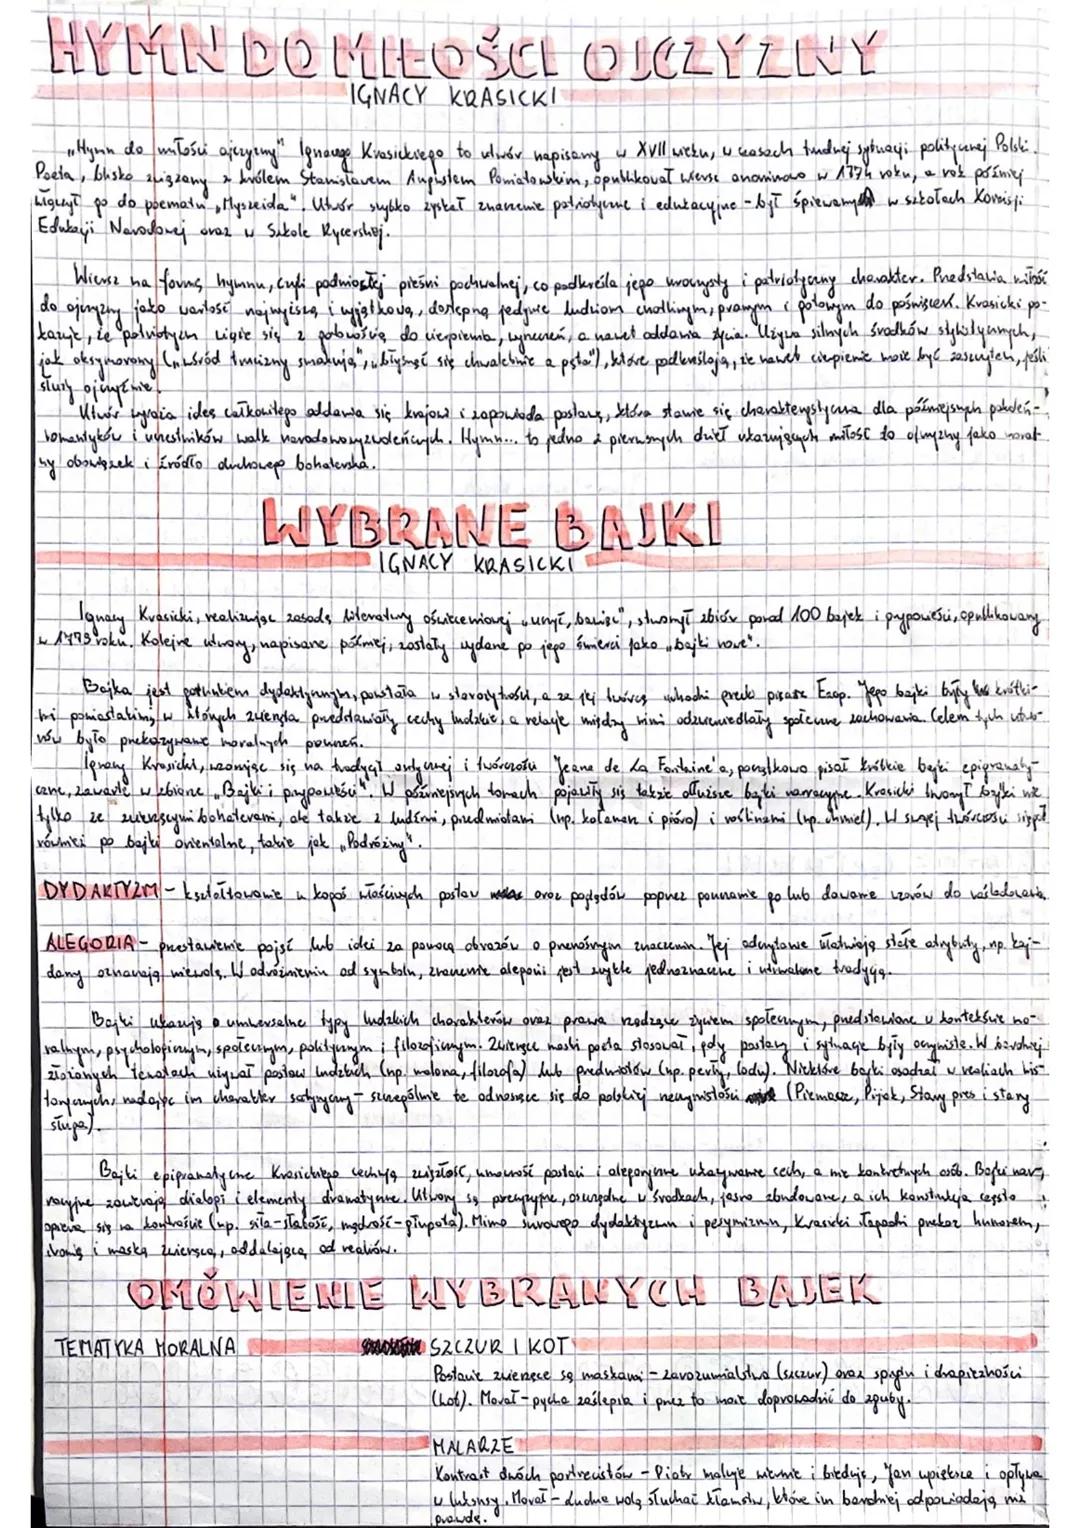 HYMN DO MIŁOŚCI OJCZYZNY
IGNACY KRASICKI
„Hymn do miłości ojczyzny" Ignacego Krasickiego to utwór napisany w XVII wieku, w czasach trudnej sytuacji politycznej Polski.
Poeta, blisko związany z królem Stanisławem Augustem Poniatowskim, opublikował wiersz anonimowo w 1774 roku, a rok później
włączył go do poematu „Myszeida". Utwór szybko zyskał znaczenie patriotyczne i edukacyjne - był śpiewany w szkołach Komisji
Edukacji Narodowej oraz w Szkole Rycerskiej.
Wiersz ma formę hymnu, czyli podniosłej pieśni pochwalnej, co podkreśla jego uroczysty i patriotyczny charakter. Przedstawia miłość
do ojczyzny jako wartość najwyższą i wyjątkową, dostępną jedynie ludziom cnotliwym, prawym i gotowym do poświęceń. Krasicki po-
kazuje, że patriotyzm wiąże się z gotowością do cierpienia, wyrzeczeń, a nawet oddania życia. Używa silnych środków stylistycznych,
jak oksymorony („wśród trucizny smakują", „błysnąć się chwalebnie a pęta"), które podkreślają, że nawet cierpienie może być zaszczytem, jeśli
służy ojczyźnie.
Utwór wyraża ideę całkowitego oddania się krajowi i zapowiada postawę, która stanie się charakterystyczna dla późniejszych pokoleń -
romantyków i uczestników walk narodowowyzwoleńczych. Hymn... to jedno z pierwszych dzieł ukazujących miłość do ojczyzny jako moral-
ny obowiązek i źródło duchowego bohaterstwa.
WYBRANE BAJKI
IGNACY KRASICKI
Ignacy Krasicki, realizując zasadę literatury oświeceniowej „uczyć, bawiąc", stworzył zbiór ponad 100 bajek i przypowieści, opublikowany
w 1779 roku. Kolejne utwory, napisane później, zostały wydane po jego śmierci jako „bajki nowe".
Bajka jest gatunkiem dydaktycznym, powstała w starożytności, a za jej twórcę uchodzi grecki pisarz Ezop. Jego bajki były krótki-
mi opowiastkami, w których zwierzęta przedstawiały cechy ludzkie, a relacje między nimi odzwierciedlały społeczne zachowania. Celem tych utwo-
rów było przekazywanie moralnych pouczeń.
Ignacy Krasicki, wzorując się na tradycji antycznej i twórczości Jeana de La Fontaine'a, początkowo pisał krótkie bajki epigramaty-
czne, zawarte w zbiorze „Bajki i przypowieści". W późniejszych tomach pojawiły się także dłuższe bajki narracyjne. Krasicki tworzył bajki nie
tylko ze zwierzęcymi bohaterami, ale także z ludźmi, przedmiotami (np. kałamarz i pióro) i roślinami (np. chmiel). W swojej twórczości sięgał
również po bajki orientalne, takie jak „Podróżny".
DYDAKTYZM - kształtowanie u kogoś właściwych postaw oraz poglądów poprzez pouczanie go lub dawanie wzorów do naśladowania.
ALEGORIA - przestawienie pojęć lub idei za pomocą obrazów o przenośnym znaczeniu. Jej odczytanie ułatwiają stałe atrybuty, np. kaj-
dany oznaczają niewolę. W odróżnieniu od symbolu, znaczenie alegorii jest zwykle jednoznaczne i utrwalone tradycją.
Bajki ukazują uniwersalne typy ludzkich charakterów oraz prawa rządzące życiem społecznym, przedstawione w kontekście mo-
ralnym, psychologicznym, społecznym, politycznym i filozoficznym. Zwierzęce maski poeta stosował, gdy postawy i sytuacje były oczywiste. W bardziej
złożonych tematach używał postaci ludzkich (np. malarza, filozofa) lub przedmiotów (np. perły, lodu). Niektóre bajki osadzał w realiach his-
torycznych, nadając im charakter satyryczny - szczególnie te odnoszące się do polskiej rzeczywistości (Pieniacze, Pijak, Stary pies i stary
sługa).
Bajki epigramatyczne Krasickiego cechują zwięzłość, umowność postaci i alegoryczne ukazywanie cech, a nie konkretnych osób. Bajki nar-
racyjne zawierają dialogi i elementy dramatyczne. Utwory są precyzyjne, oszczędne w środkach, jasno zbudowane, a ich konstrukcja często
opiera się na kontraście (np. siła-słabość, mądrość-głupota). Mimo surowego dydaktyzmu i pesymizmu, Krasicki łagodzi przekaz humorem,
ironią i maską zwierzęcą, oddalającą od realiów.
OMÓWIENIE WYBRANYCH BAJEK
TEMATYKA MORALNA
SZCZUR I KOT
Postacie zwierzęce są maskami - zarozumialstwa (szczur) oraz sprytu i drapieżności
(kot). Morał - pycha zaślepia i przez to może doprowadzić do zguby.
MALARZE
Kontrast dwóch portrecistów - Piotr maluje wiernie i bieduje, Jan upiększa i opływa
w luksusy. Morał - ludzie wolą słuchać kłamstw, które im bardziej odpowiadają niż
prawda.